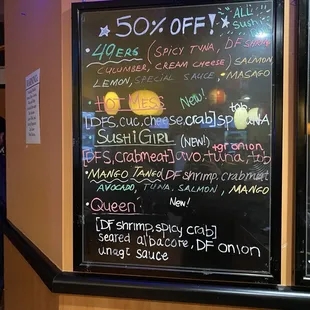 50% OFF! ALL
Sushi
49ERS (SPICY TUNA, DF SHRIMP
CUCUMBER, CREAM CHEESE) SALMON
LEMON, SPECIAL SAUCE • MASAGO
• HOT MESS New!
[DFS, CUC, cheese, crab] tob
SUSHI GIRL (NEW!) gr onion
[DFS, crabmeat] avo, tuna, tob
• MANGO TANGO (DF shrimp, crabmeat
AVOCADO, TUNA, SALMON, MANGO
• Queen: New!
[DF shrimp, spicy crab]
seared albacore, DF onion
unagi sauce